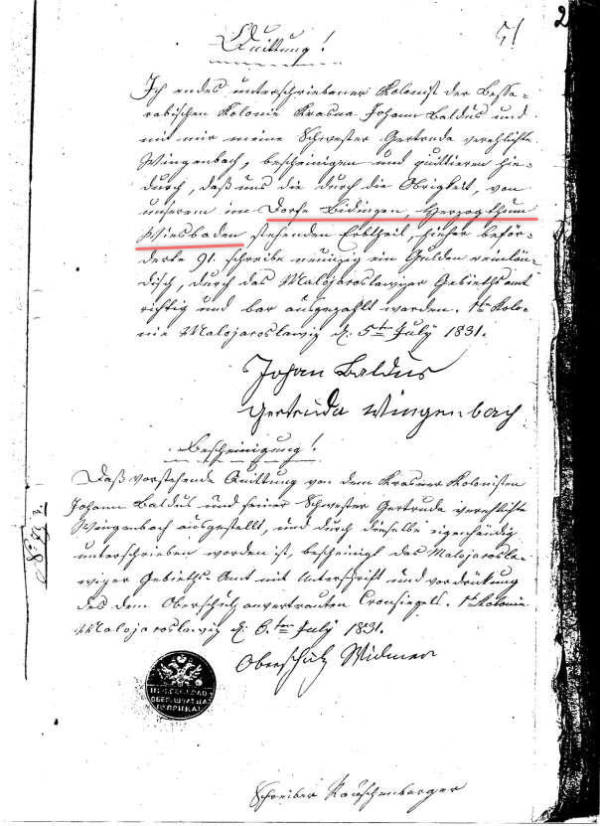 51
2
Quittung!
Ich endes unterschriebener Kolonist der Bessa-
rabischen Kolonie Krasna Johann Baldus und
mit mir meine Schwester Gertruda verehlichte
Wingenbach, bescheinigen und quittieren hie-
durch, daß uns die durch die Obrigkeit, von
unserem im Dorfe Bidingen, Herzogthum
Wiesbaden stehenden Erbtheil, hieher beför-
derte 91. schreibe neunzig ein Gulden reinlän-
disch, durch das Malojaroslawezer Gebiethsamt
richtig und bar ausgezahlt worden. 1te Kolo-
nie Malojaroslawiz d. 5ten July 1831.
Johan Baldus
Gertruda Wingenbach
Bescheinigung!
Daß vorstehende Quittung von dem Krasnaer Kolonisten
Johann Baldus und seiner Schwester Gertruda verehlichte
Wingenbach ausgestellt, und durch dieselbe eigenhändig
unterschrieben worden ist, bescheinigt das Malojarosla-
wezer Gebieths Amt mit Unterschrift und vordrückung
des dem Oberschulz anvertrauten Cronsiegels. 1te Kolonie
Malojaroslawiz d. 6.ten July 1831.
Oberschulz Widmer
Schreiber Rauschenberger